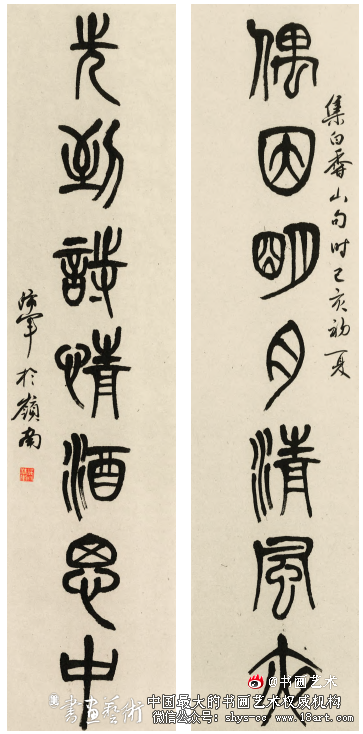 偶因明月清風夜
集白香山句时己亥初夏
先到詩情酒思中
軍於嶺南
@书画艺术
書畫藝術
中国最大的书画艺术权威机构
微信公众号：shys-cc www.18art.com